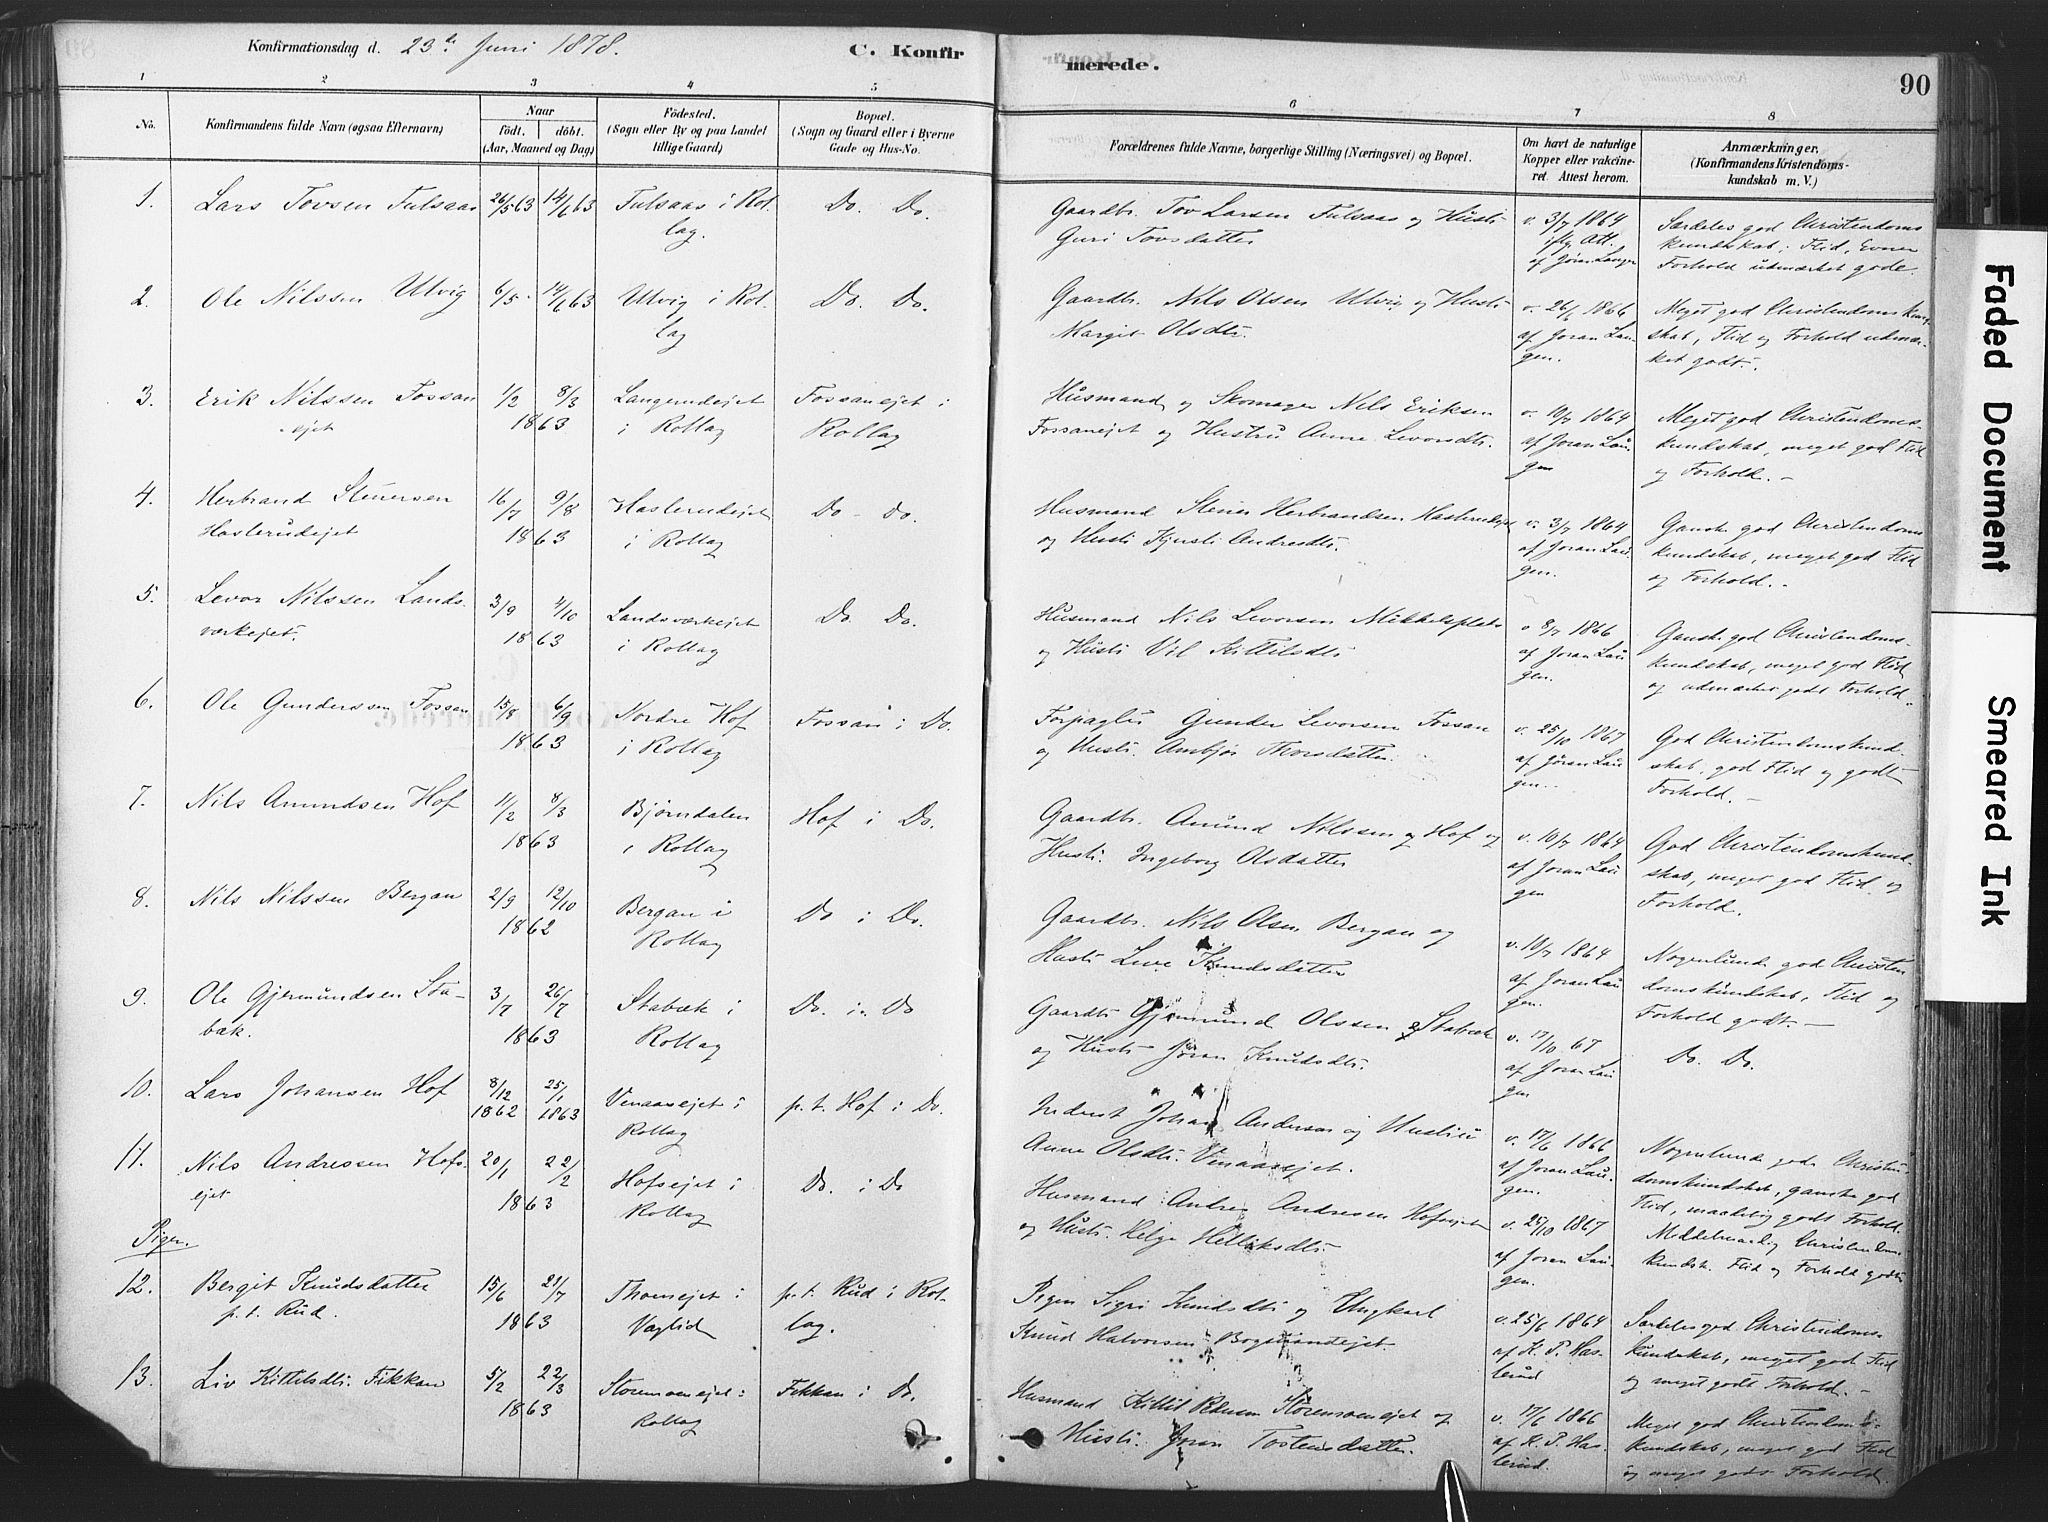 Konfirmationsdag d. 23de Juni 1878.
C. Konfir
merede.
90
1 2 3 4 5 6 7 8
No.
Konfirmandens fulde Navn (ogsaa Efternavn)
Naar
födt. döbt.
(Aar, Maaned og Dag)
Födested.
(Sogn eller By og paa Landet
tillige Gaard)
Bopæl.
(Sogn og Gaard eller i Byerne
Gade og Hus-No.
Forældrenes fulde Navne, borgerlige Stilling (Næringsvei) og Bopæl.
Om havt de naturlige
Kopper eller vakcine-
ret. Attest herom.
Anmærkninger,
(Konfirmandens Kristendoms-
kundskab m. V.)
1. Lars Tovsen Fulsaas 26/5 63 14/6 63 Fulsaas i Rol- Do. Do.
lag.
Gaardbr. Tov Larsen Fulsaas og Hustr.
Guri Tovsdatter
v. 3/7 1864
iflg. Att.
af Jøran Laugen
Særdeles god Christendoms
kundskab. Flid, Evner
Forhold udmærket gode.
2. Ole Nilssen Ulvig 6/5 - 14/6 63 Ulvig i Rol- Do. Do.
lag
Gaardbr. Nils Olsen Ulvig og Hustr.
Margit Olsdtr.
v. 26/6 1866
af Joran Lau-
gen.
Meget god Christendomskund-
skab, Flid og Forhold udmær-
ket godt.
3. Erik Nilssen Fossan 1/2 8/3 Langerudejet Fossanejet i
ejet 1863 i Rollag Rollag
Husmand og Skomager Nils Eriksen
Fossanejet og Hustru Anne Levorsdtr.
v. 10/7 1864
af Joran Lau-
gen
Meget god Christendoms-
kundskab, meget god Flid
og Forhold. -
4. Herbrand Steinersen 16/7 9/8 Haslerudejet Do - do.
Haslerudejet 1863 i Rollag
Husmand Steiner Herbrandsen Haslerudejet
og Hustr. Kjersti Andresdtr.
v. 3/7 1864
af Joran Lau-
gen.
Ganske god Christendoms
kundskab, meget god Flid
og Forhold. -
5. Levor Nilssen Lands- 3/9 4/10 Landsværkejet Do. Do.
værkejet. 1863 i Rollag
Husmand Nils Levorsen Mikkelsplads
og Hustr. Vil Kittilsdtr.
v 8/7 1866
af Joran Lau-
gen.
Ganske god Christendoms-
kundskab, meget god Flid
og udmærket godt Forhold.
6. Ole Gunderssen Fossan 15/8 6/9 Nordre Hof Fossan i Do.
1863 i Rollag
Forpagter Gunder Levorsen Fossan
og Hustr. Ambjør Thorsdatter.
v. 25/10 1867
af Jøran Lau-
gen.
God Christendomskund-
skab, god Flid og godt
Forhold. -
7. Nils Amundsen Hof 11/2 8/3 Bjørndalen Hof i Do.
1863 i Rollag
Gaardbr. Amund Nilssen Hof og
Hustr. Ingeborg Olsdatter
v. 10/7 1864
af Joran Lau
gen
God Christendomskund-
skab, meget god Flid og
Forhold.
8. Nils Nilssen Bergan 2/9 12/10 Bergan i Do i Do.
1862 Rollag
Gaardbr. Nils Olsen Bergan og
Hustr. Live Knudsdatter
v. 10/7 1864
af Joran Lau
gen.
Nogenlunde god Christen
domskundskab, Flid og
Forhold godt. -
9. Ole Gjermundsen Sta- 3/7 26/7 Stabæk i Do. i Do
bæk. 1863 Rollag
Gaardbr. Gjermund Olssen Stabæk
og Hustr. Jøran Knudsdtr.
v. 17/10 67
af Joran Lau
gen
Do. Do.
10. Lars Johansen Hof 8/12 25/1 Venaasejet i p. t. Hof i Do.
1862 1863 Rollag
Inderst Johan Anderssen og Hustru
Anne Olsdtr. Venaasejet.
v. 17/6 1866
af Joran Lau-
gen.
Nogenlunde god Christen-
domskundskab, ganske god
Flid, maadelig godt Forhold.
11. Nils Andressen Hofs- 20/1 22/2 Hofsejet i Do. i Do
ejet 1863 Rollag
Husmand Andres Andresen Hofsejet
og Hustr. Helge Helliksdtr.
v. 25/10 1867
af Joran Lau
gen.
Middelmaadig Christendoms
kundsk. Flid og Forhold godt.
Piger.
12. Bergit Knudsdatter 15/6 21/7 Thomsejet i p. t. Rud i Rol-
p. t. Rud. 1863 Væglid lag.
Pigen Sigri Knudsdtr. og Ungkarl
Knud Halvorsen
v. 25/6 1864
af K. P. Has-
lerud
Særdeles god Christendoms-
kundskab, meget god Flid
og meget godt Forhold. -
13. Liv Kittilsdtr. Fikkan 5/2 22/3 Storemoenejet i Fikkan i Do.
1863 Rollag
Husmand Kittil Storemoenejet og
Hustr. Joran Tostensdatter.
v. 17/6 1866
af K. P. Has-
lerud.
Meget god Christendoms-
kundskab, meget god Flid
og meget godt Forhold.
Faded Document
Smeared Ink